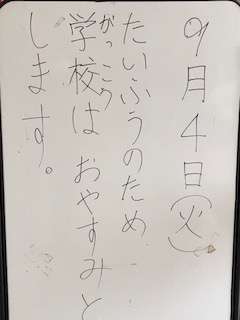 9月4日(火)
たいふうのため
学校は おやすみと
がっこう
します。